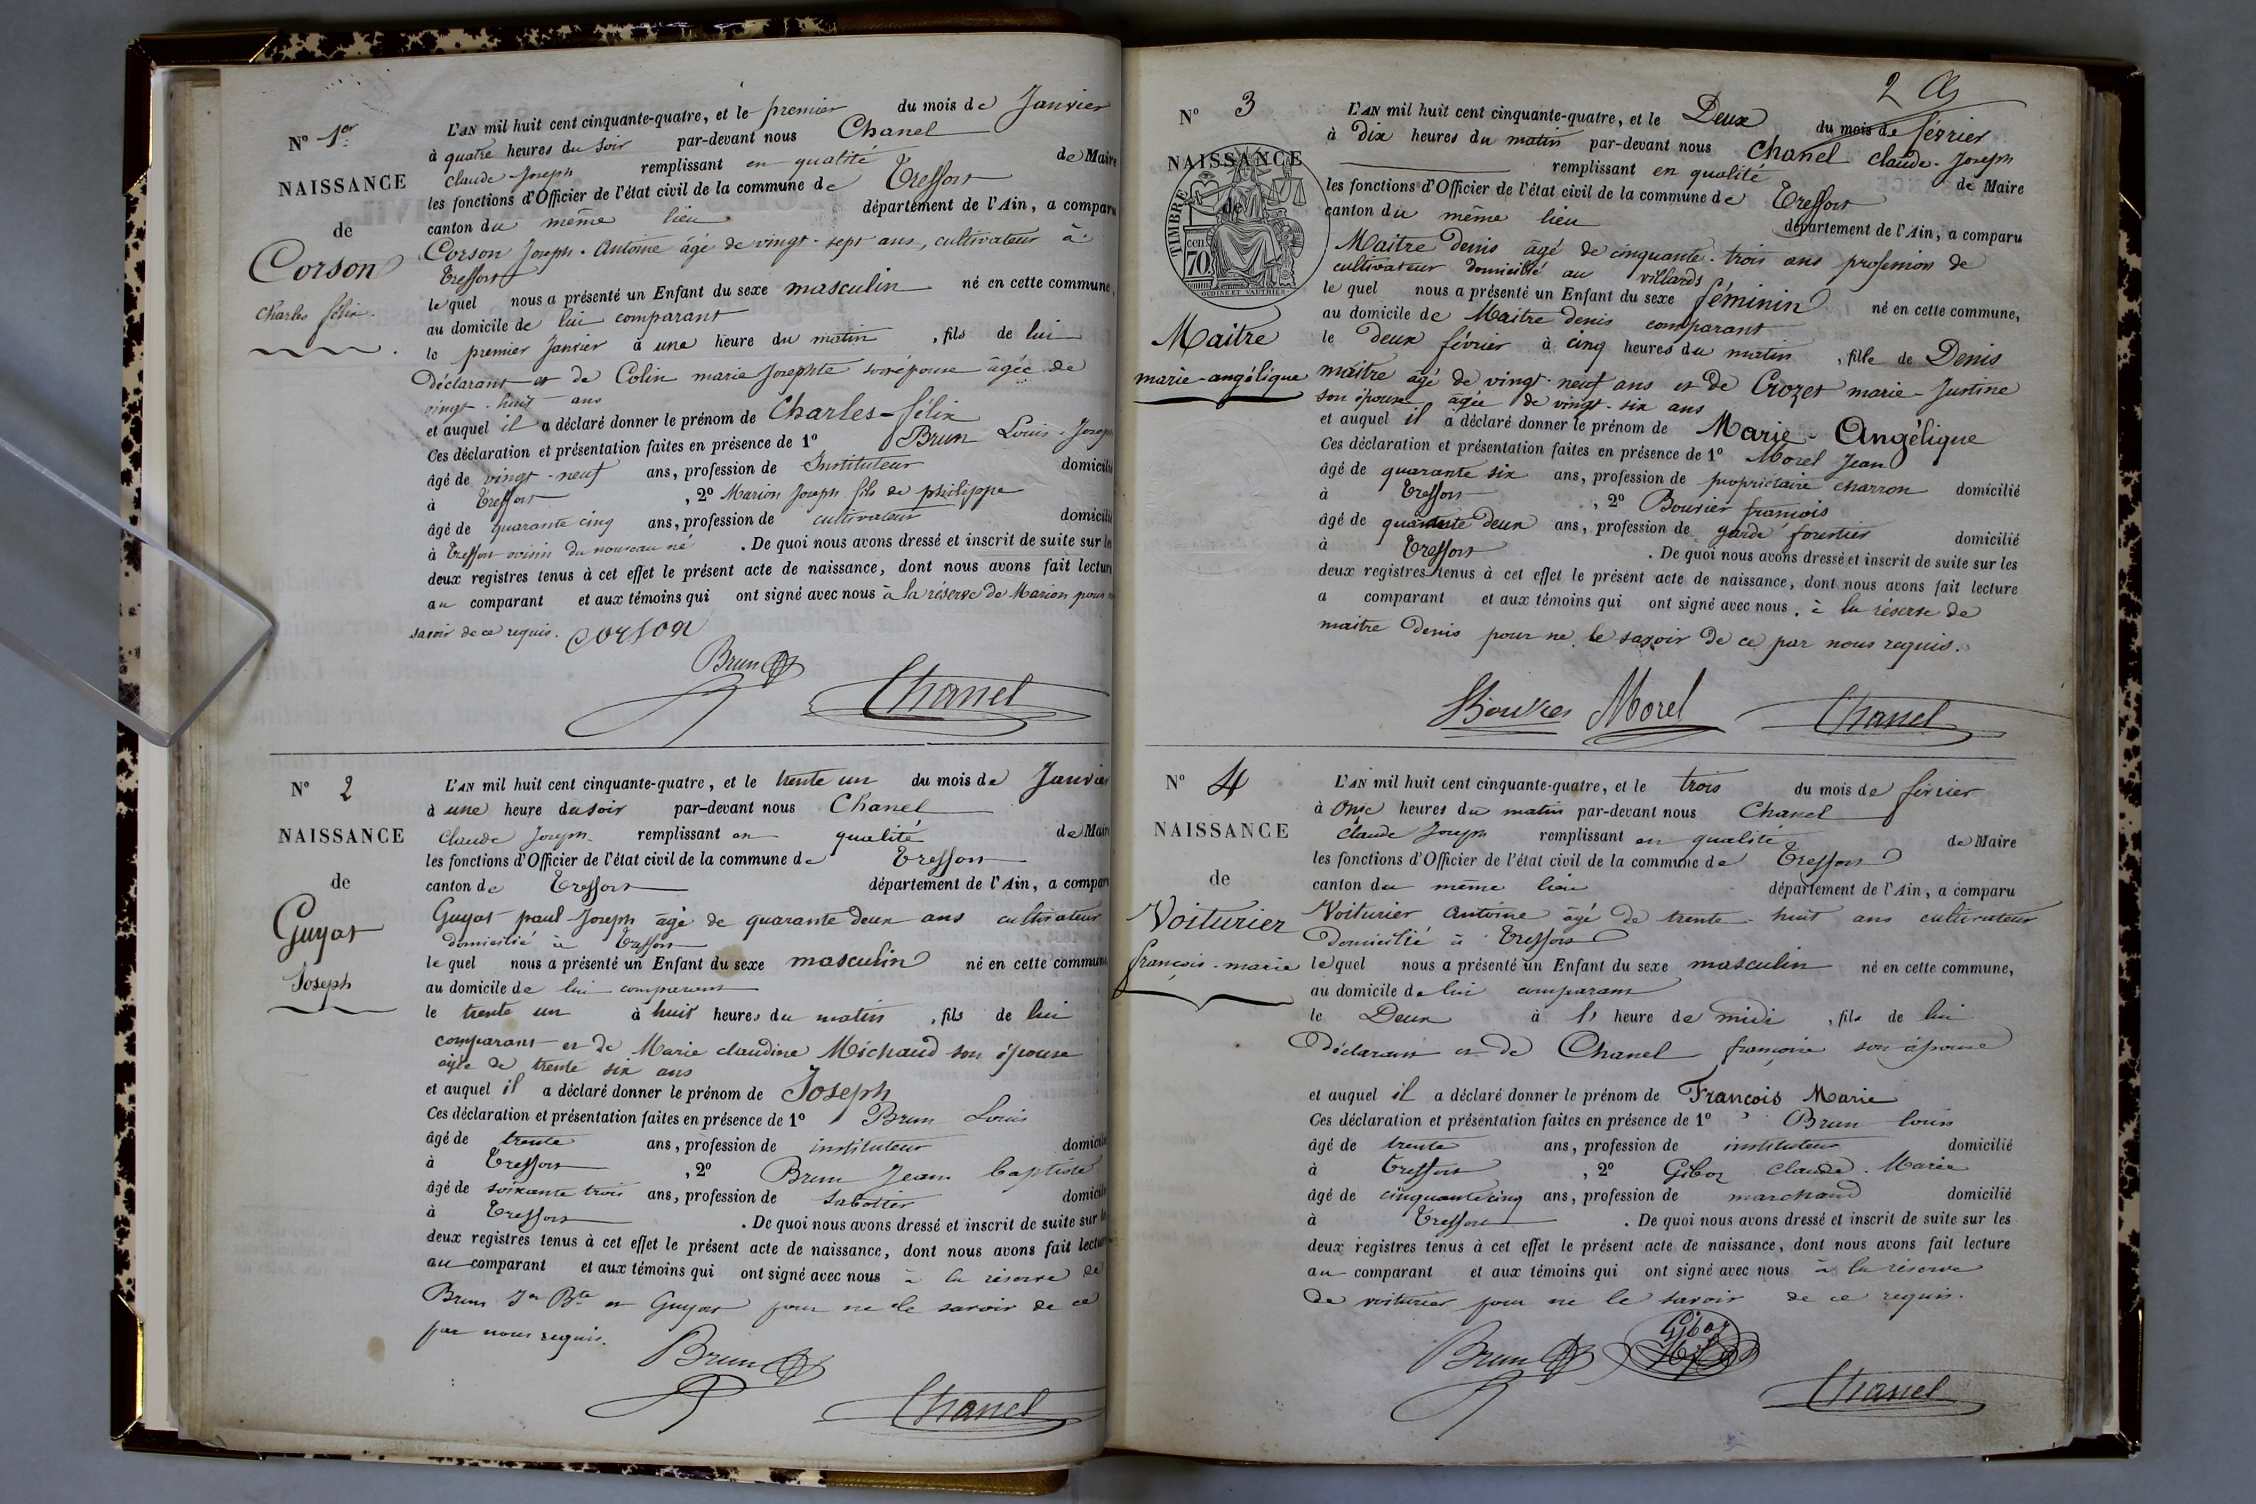 N° 1er
NAISSANCE
de
Corson
Charles félix.
L'AN mil huit cent cinquante-quatre, et le premier du mois de Janvier
à quatre heures du soir par-devant nous Chanel
claude-Joseph remplissant en qualité de Maire
les fonctions d'Officier de l'état civil de la commune de Treffort
canton du même lieu département de l'Ain, a comparu
Corson Joseph-Antoine âgé de vingt-sept ans, cultivateur à
Treffort
lequel nous a présenté un Enfant du sexe masculin né en cette commune,
au domicile de lui comparant
le premier Janvier à une heure du matin, fils de lui
Déclarant et de Colin marie Josephte son épouse âgée de
vingt-huit ans
et auquel il a déclaré donner le prénom de Charles-félix
Ces déclaration et présentation faites en présence de 1° Brun Louis-Joseph
âgé de vingt-neuf ans, profession de Instituteur domicilié
à Treffort, 2° Marion Joseph fils de philippe
âgé de quarante cinq ans, profession de cultivateur domicilié
à Treffort voisin du nouveau né. De quoi nous avons dressé et inscrit de suite sur les
deux registres tenus à cet effet le présent acte de naissance, dont nous avons fait lecture
au comparant et aux témoins qui ont signé avec nous à la réserve de Marion pour ne
savoir de ce requis. corson
Brun
Chanel
N° 2
NAISSANCE
de
Guyot
Joseph
L'AN mil huit cent cinquante-quatre, et le trente un du mois de Janvier
à une heure du soir par-devant nous Chanel
Claude Joseph remplissant en qualité de Maire
les fonctions d'Officier de l'état civil de la commune de Treffort
canton de Treffort département de l'Ain, a comparu
Guyot paul-Joseph âgé de quarante deux ans cultivateur
domicilié à Treffort
lequel nous a présenté un Enfant du sexe masculin né en cette commune
au domicile de lui comparant
le trente un à huit heures du matin, fils de lui
comparant et de Marie claudine Michaud son épouse
âgée de trente six ans
et auquel il a déclaré donner le prénom de Joseph
Ces déclaration et présentation faites en présence de 1° Brun Louis
âgé de trente ans, profession de instituteur domicilié
à Treffort, 2° Brun Jean baptiste
âgé de soixante trois ans, profession de sabotier domicilié
à Treffort. De quoi nous avons dressé et inscrit de suite sur les
deux registres tenus à cet effet le présent acte de naissance, dont nous avons fait lecture
au comparant et aux témoins qui ont signé avec nous à la réserve de
Brun Jn Bte et Guyot pour ne le savoir de ce
par nous requis.
Brun
Chanel
2
N° 3
NAISSANCE
de
TIMBRE
70
OUDINÉ ET VAUTHIER
Maitre
marie-angélique
L'AN mil huit cent cinquante-quatre, et le Deux du mois de février
à Dix heures du matin par-devant nous Chanel claude-Joseph
remplissant en qualité de Maire
les fonctions d'Officier de l'état civil de la commune de Treffort
canton du même lieu département de l'Ain, a comparu
Maitre Denis âgé de cinquante-trois ans profession de
cultivateur domicilié au villards
lequel nous a présenté un Enfant du sexe féminin né en cette commune,
au domicile de Maitre denis comparant
le deux février à cinq heures du matin, fille de Denis
maitre âgé de vingt-neuf ans et de Crozet marie-Justine
son épouse âgée de vingt-six ans
et auquel il a déclaré donner le prénom de Marie-Angélique
Ces déclaration et présentation faites en présence de 1° Morel Jean
âgé de quarante six ans, profession de propriétaire charron domicilié
à Treffort, 2° Bouvier françois
âgé de quarante deux ans, profession de garde forestier domicilié
à Treffort. De quoi nous avons dressé et inscrit de suite sur les
deux registres tenus à cet effet le présent acte de naissance, dont nous avons fait lecture
a comparant et aux témoins qui ont signé avec nous, à la réserve de
maitre Denis pour ne le savoir de ce par nous requis.
Morel
Chanel
N° 4
NAISSANCE
de
Voiturier
françois-marie
L'AN mil huit cent cinquante-quatre, et le trois du mois de février
à onze heures du matin par-devant nous Chanel
claude Joseph remplissant en qualité de Maire
les fonctions d'Officier de l'état civil de la commune de Treffort
canton du même lieu département de l'Ain, a comparu
Voiturier Antoine âgé de trente-huit ans cultivateur
Domicilié à Treffort
lequel nous a présenté un Enfant du sexe masculin né en cette commune,
au domicile de lui comparant
le Deux à heure de midi, fils de lui
Déclarant et de Chanel françoise son épouse
et auquel il a déclaré donner le prénom de François Marie
Ces déclaration et présentation faites en présence de 1° Brun louis
âgé de trente ans, profession de instituteur domicilié
à Treffort, 2° Giboz Claude-Marie
âgé de cinquante cinq ans, profession de marchand domicilié
à Treffort. De quoi nous avons dressé et inscrit de suite sur les
deux registres tenus à cet effet le présent acte de naissance, dont nous avons fait lecture
au comparant et aux témoins qui ont signé avec nous à la réserve
de voiturier pour ne le savoir de ce requis.
Brun
Giboz
Chanel